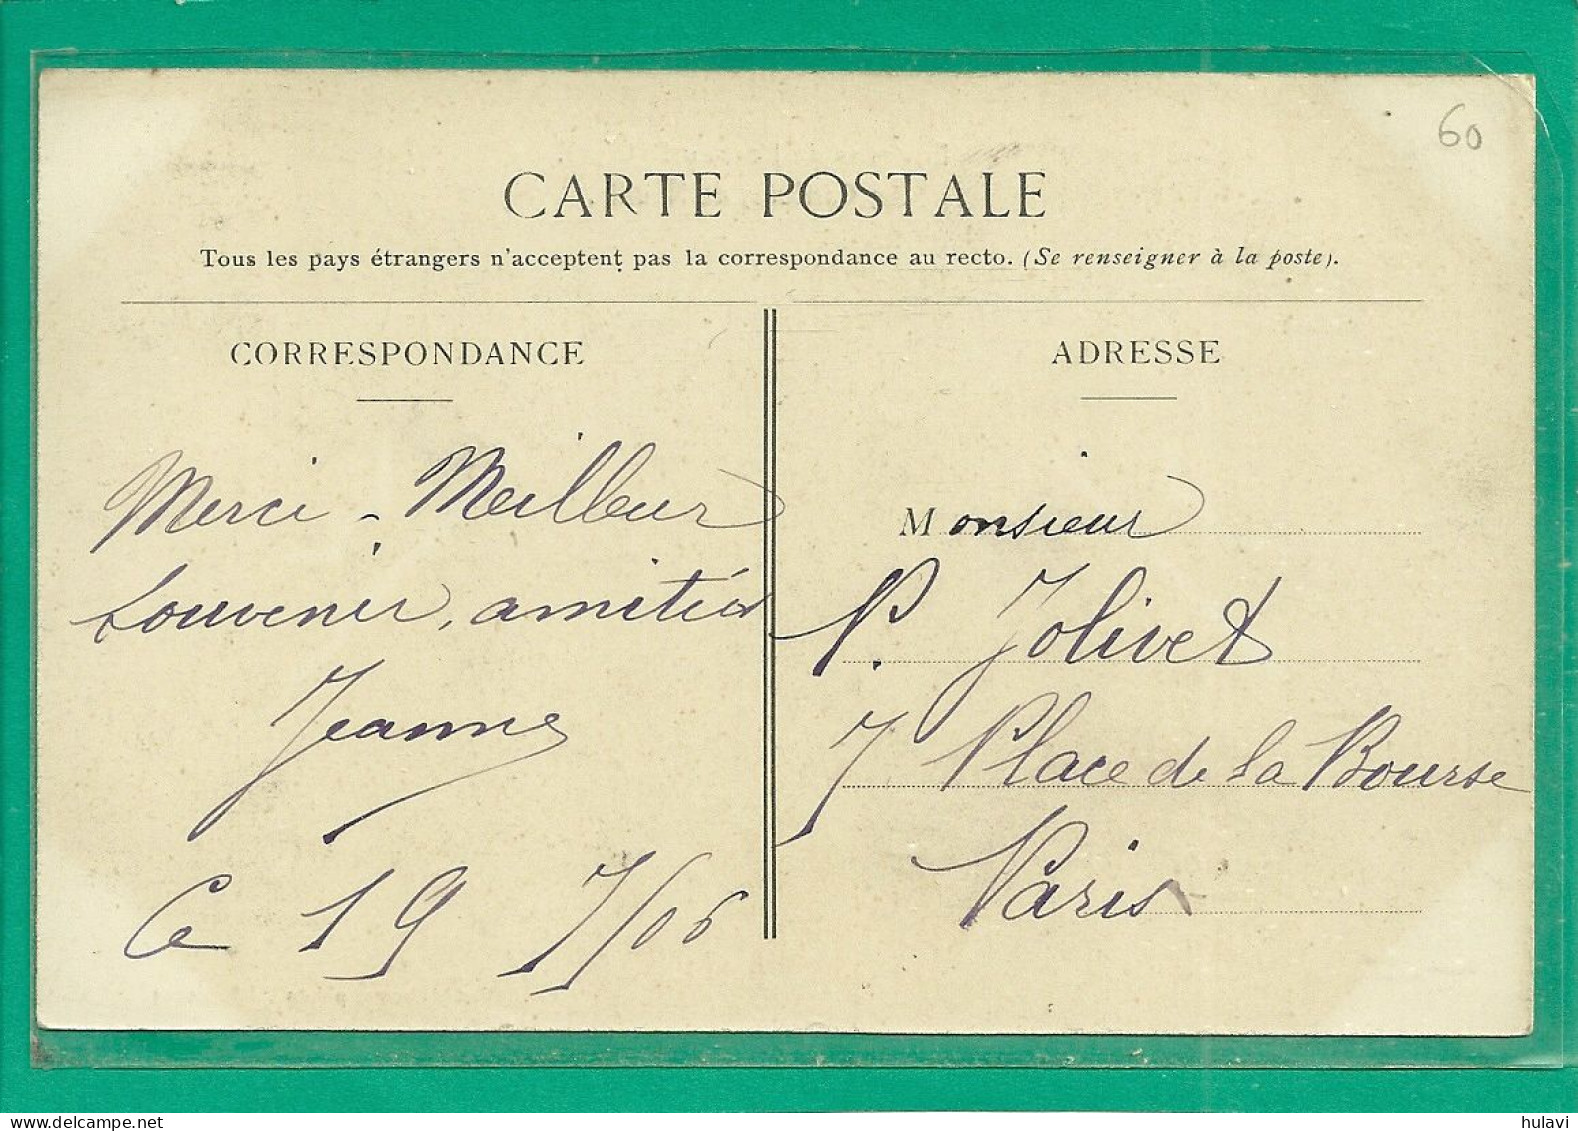 60
CARTE POSTALE
Tous les pays étrangers n'acceptent pas la correspondance au recto. (Se renseigner à la poste).
CORRESPONDANCE
Merci - Meilleur
souvenir, amitiés
Jeanne
Ce 19 7/06
ADRESSE
Monsieur
P. Jolivet
7 Place de la Bourse
Paris
www.delcampe.net
hulavi